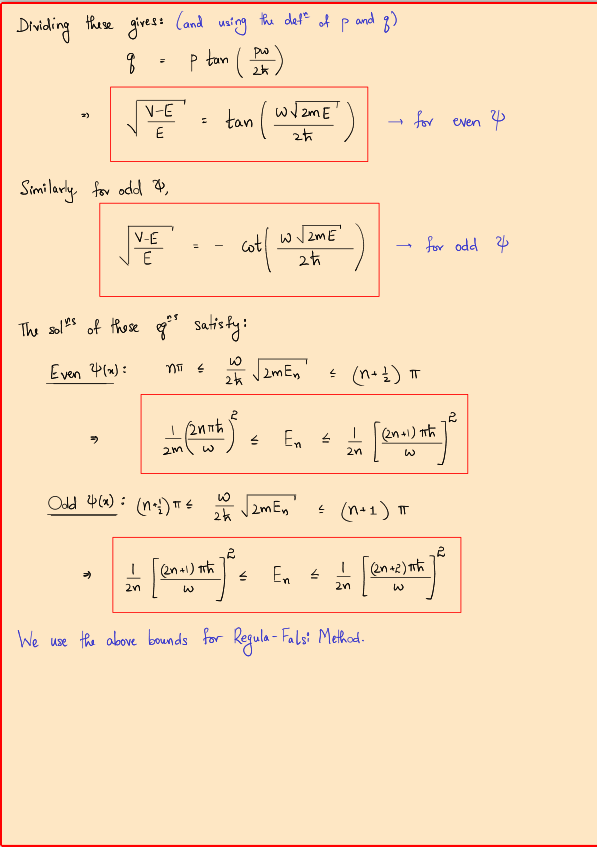 Dividing these gives: (and using the defⁿ of p and q)
q = p tan (pw/2ħ)
⇒ √((V-E)/E) = tan (w√(2mE)/2ħ) → for even ψ
Similarly, for odd ψ,
√((V-E)/E) = - cot (w√(2mE)/2ħ) → for odd ψ
The solⁿˢ of these eqⁿˢ satisfy:
Even ψ(x): nπ ≤ w/2ħ √(2mEₙ) ≤ (n+½) π
⇒ 1/2m (2nπħ/w)² ≤ Eₙ ≤ 1/2n [(2n+1)πħ/w]²
Odd ψ(x): (n+½)π ≤ w/2ħ √(2mEₙ) ≤ (n+1) π
⇒ 1/2n [(2n+1)πħ/w]² ≤ Eₙ ≤ 1/2n [(2n+2)πħ/w]²
We use the above bounds for Regula-Falsi Method.